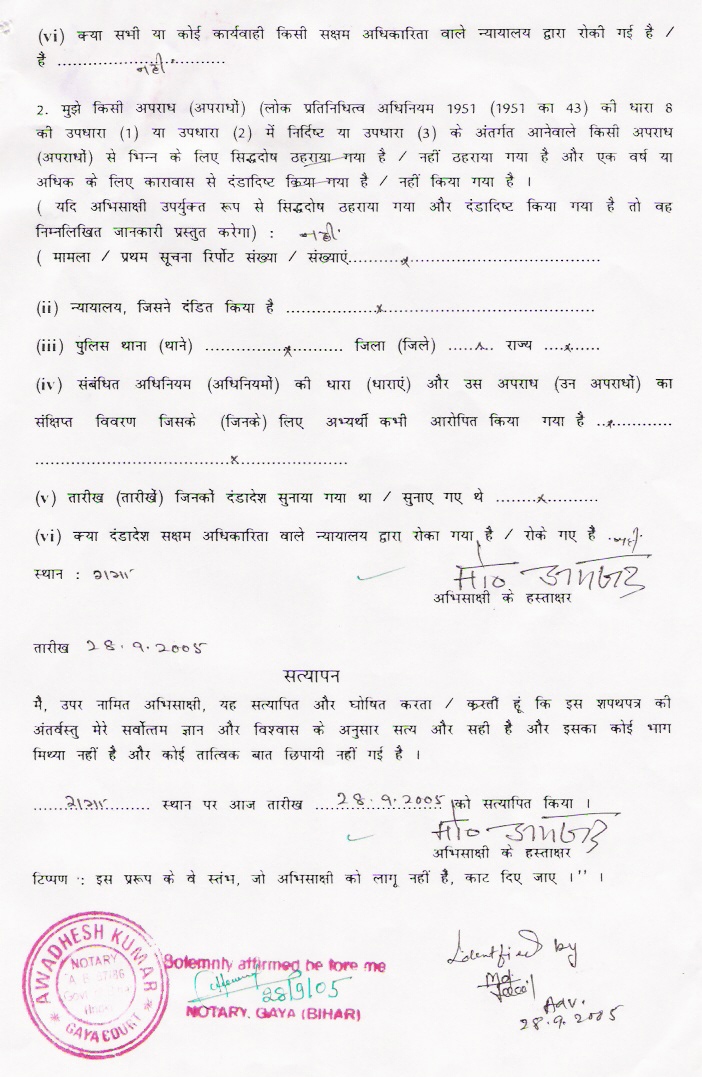 (vi) क्या सभी या कोई कार्यवाही किसी सक्षम अधिकारिता वाले न्यायालय द्वारा रोकी गई है /
है ............नहीं............
2. मुझे किसी अपराध (अपराधों) (लोक प्रतिनिधित्व अधिनियम 1951 (1951 का 43) की धारा 8
की उपधारा (1) या उपधारा (2) में निर्दिष्ट या उपधारा (3) के अंतर्गत आनेवाले किसी अपराध
(अपराधों) से भिन्न के लिए सिद्धदोष ठहराया गया है / नहीं ठहराया गया है और एक वर्ष या
अधिक के लिए कारावास से दंडादिष्ट किया गया है / नहीं किया गया है ।
( यदि अभिसाक्षी उपर्युक्त रूप से सिद्धदोष ठहराया गया और दंडादिष्ट किया गया है तो वह
निम्नलिखित जानकारी प्रस्तुत करेगा) : नहीं
( मामला / प्रथम सूचना रिर्पोट संख्या / संख्याएं..........x..............................
(ii) न्यायालय, जिसने दंडित किया है ...............x..................................
(iii) पुलिस थाना (थाने) .............x......... जिला (जिले) .....x.. राज्य ....x......
(iv) संबंधित अधिनियम (अधिनियमों) की धारा (धाराएं) और उस अपराध (उन अपराधों) का
संक्षिप्त विवरण जिसके (जिनके) लिए अभ्यर्थी कभी आरोपित किया गया है ..x............
....................................x....................
(v) तारीख (तारीखें) जिनकों दंडादेश सुनाया गया था / सुनाए गए थे ........x..........
(vi) क्या दंडादेश सक्षम अधिकारिता वाले न्यायालय द्वारा रोका गया है / रोके गए है .नहीं.
स्थान : गया
अभिसाक्षी के हस्ताक्षर
तारीख 28.9.2005
सत्यापन
मै, उपर नामित अभिसाक्षी, यह सत्यापित और घोषित करता / करती हूं कि इस शपथपत्र की
अंतर्वस्तु मेरे सर्वोत्तम ज्ञान और विश्वास के अनुसार सत्य और सही है और इसका कोई भाग
मिथ्या नहीं है और कोई तात्विक बात छिपायी नहीं गई है ।
......गया......... स्थान पर आज तारीख ....28.9.2005 को सत्यापित किया ।
अभिसाक्षी के हस्ताक्षर
टिप्पण : इस प्ररूप के वे स्तंभ, जो अभिसाक्षी को लागू नहीं है, काट दिए जाए ।'' ।
AWADHESH KUMAR
NOTARY
GAYA COURT
Solemnly affirmed be fore me
28/9/05
NOTARY. GAYA (BIHAR)
Identified by
Adv.
28.9.2005